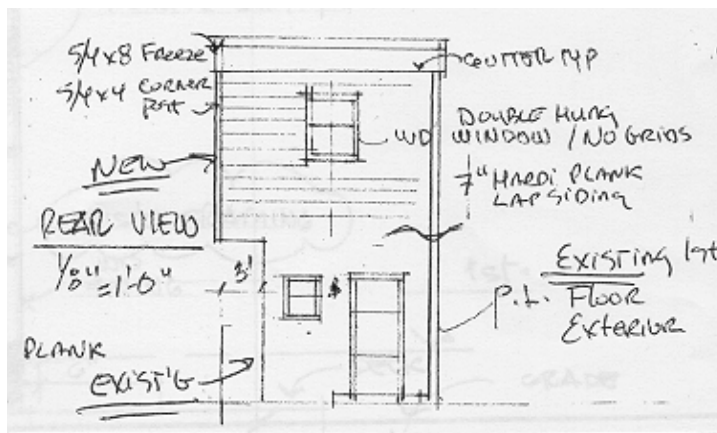 5/4x8 Freeze
5/4x4 Corner
GUTTER TYP
WD
DOUBLE HUNG
WINDOW / NO GRIDS
7" HARDI PLANK
LAP SIDING
NEW
REAR VIEW
1/8" = 1'-0"
3'
EXISTING 1st
P.L. FLOOR
EXTERIOR
PLANK
EXIST'G